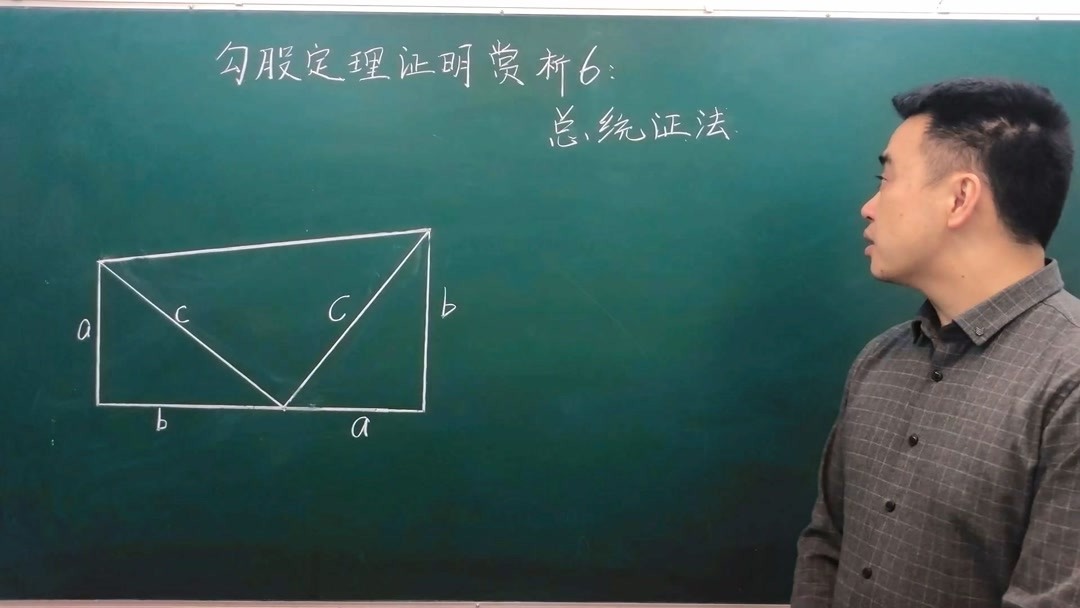 勾股定理证明赏析6:
总统证法
a
c
C
b
b
a